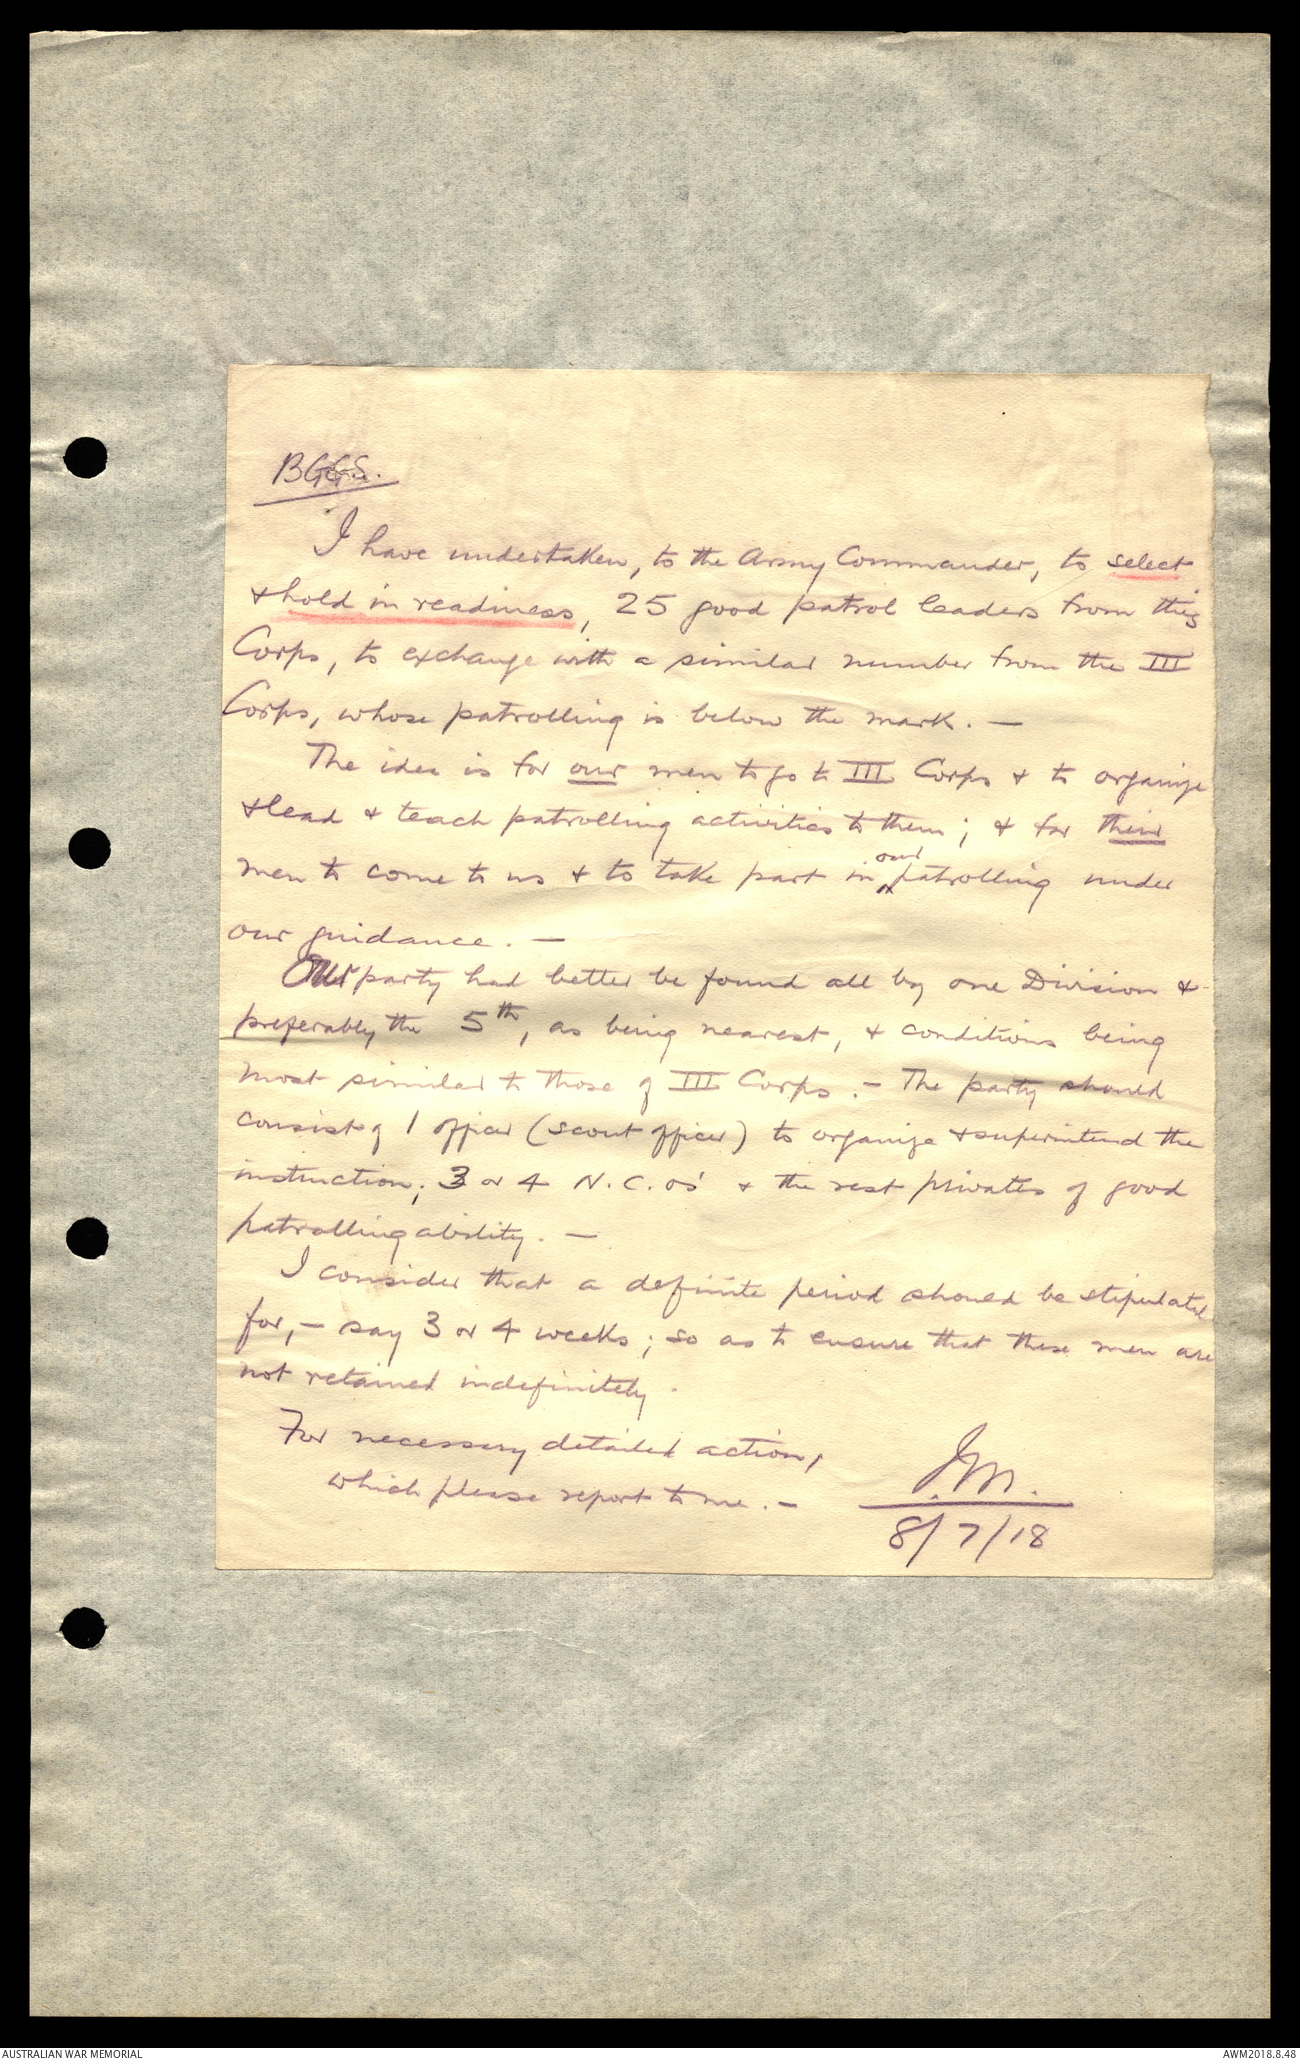 BGGS.
I have undertaken, to the Army Commander, to select
& hold in readiness, 25 good patrol leaders from this
Corps, to exchange with a similar number from the III
Corps, whose patrolling is below the mark. —
The idea is for our men to go to III Corps & to organize
& lead & teach patrolling activities to them; & for their
men to come to us & to take part in our patrolling under
our guidance. —
Our party had better be found all by one Division &
preferably the 5th, as being nearest, & conditions being
most similar to those of III Corps. — The party should
consist of 1 officer (scout officer) to organize & superintend the
instruction; 3 or 4 N.C.Os' & the rest privates of good
patrolling ability. —
I consider that a definite period should be stipulated
for, — say 3 or 4 weeks; so as to ensure that these men are
not retained indefinitely.
For necessary detailed action,
which please report to me. —
J.M.
8/7/18
AUSTRALIAN WAR MEMORIAL
AWM2018.8.48